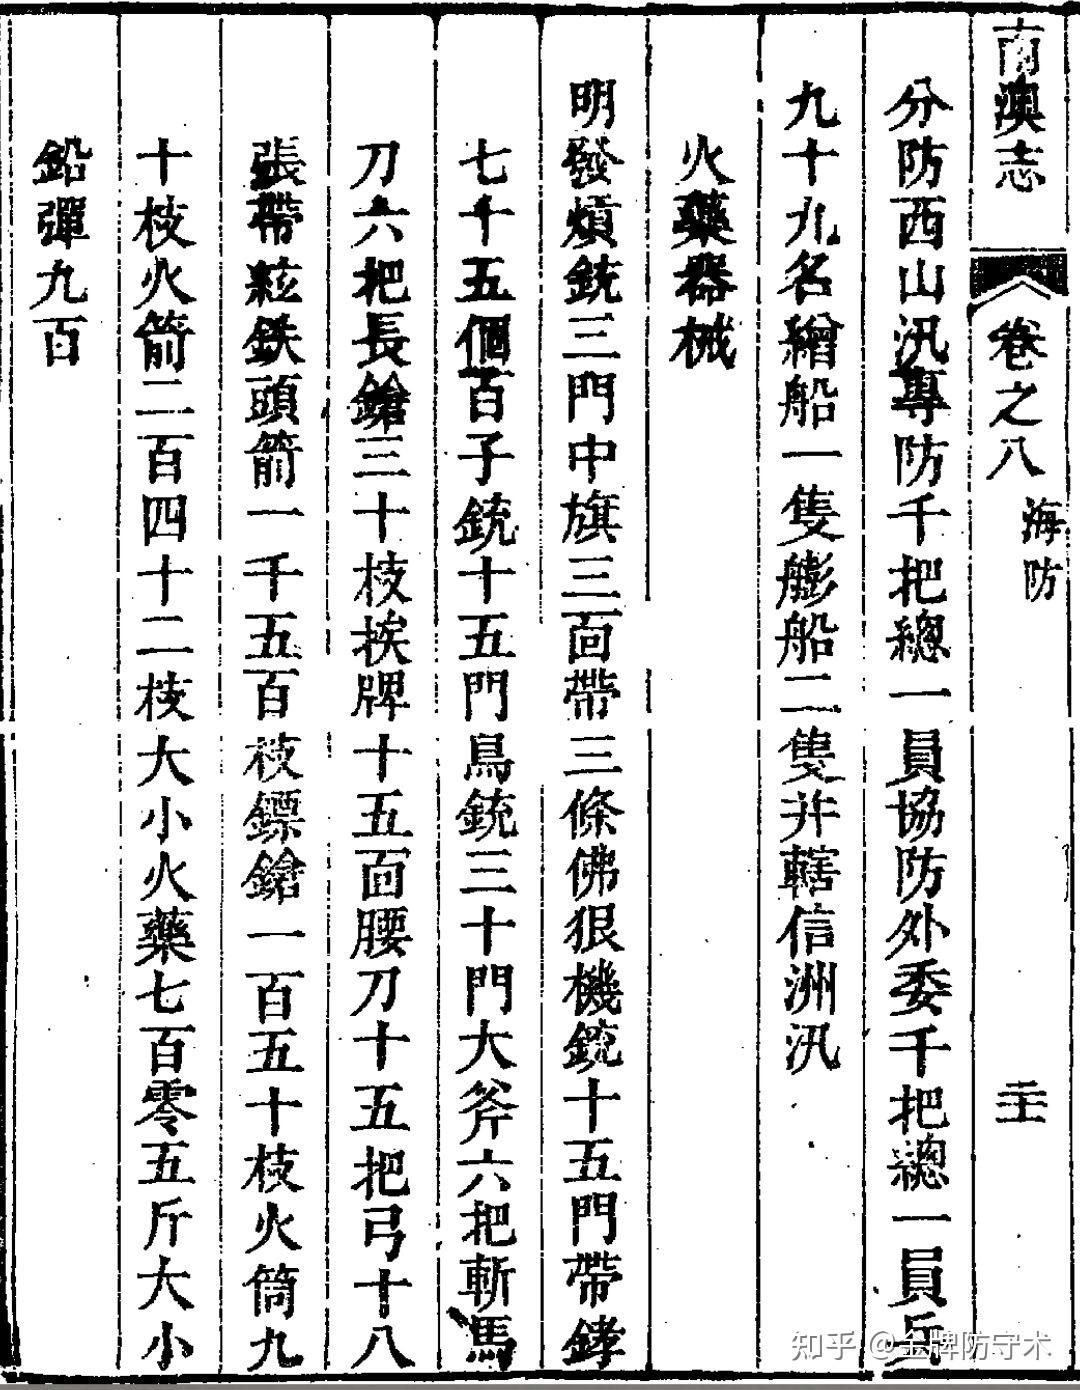 南澳志
卷之八
海防
二十
分防西山汛專防千把總一員協防外委千把總一員兵
九十九名繒船一隻艍船二隻并轄信洲汛
火藥器械
明發熕銃三門中旗三面帶三條佛狠機銃十五門帶銲
七十五個百子銃十五門鳥銃三十門大斧六把斬馬
刀六把長鎗三十枝挨牌十五面腰刀十五把弓十八
張帶絃鉄頭箭一千五百枝鏢鎗一百五十枝火筒九
十枝火箭二百四十二枝大小火藥七百零五斤大小
鉛彈九百
知乎 @金牌防守术